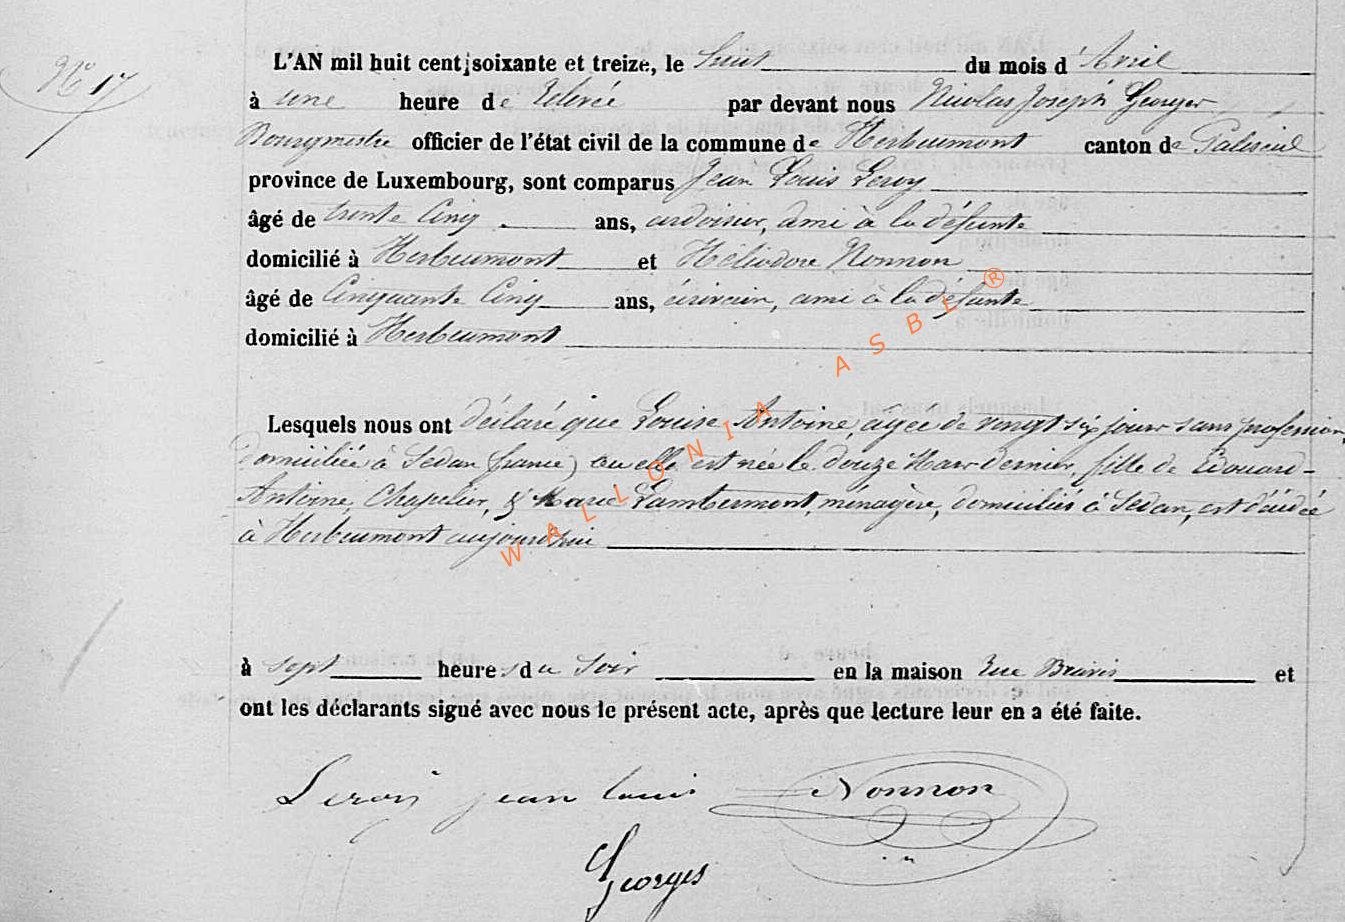 N° 17
L'AN mil huit cent soixante et treize, le huit du mois d'Avril
à une heure de Relevée par devant nous Nicolas Joseph Georges
Bourgmestre officier de l'état civil de la commune de Herbeumont canton de Paliseul
province de Luxembourg, sont comparus Jean Louis Leroy
âgé de trente Cinq ans, ardoisier, ami à la défunte
domicilié à Herbeumont et Héliodore Nonnon
âgé de Cinquante Cinq ans, écrivain, ami à la défunte
domicilié à Herbeumont
Lesquels nous ont déclaré que Louise Antoine, agée de vingt six jours sans profession,
domiciliée à Sedan (france) ou elle est née le douze Mars dernier, fille de Edouard
Antoine, Chapelier, & Marie Lambermont, ménagère, domiciliés à Sedan, est décédée
à Herbeumont aujourdhui
à sept heures du Soir en la maison Rue et
ont les déclarants signé avec nous le présent acte, après que lecture leur en a été faite.
Leroy jean louis Nonnon
Georges
WALLONIA ASBL ®